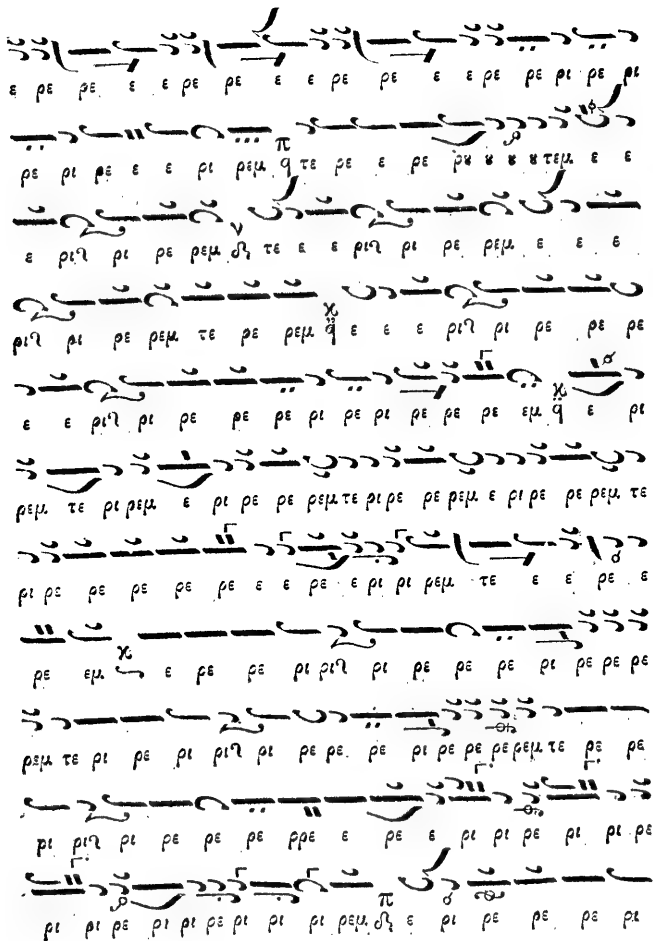 ε ρε ρε ε ε ρε ρε ε ε ρε ρε ε ε ρε ρε ρι ρε ρι
ρε ρι ρε ε ε ρι ρεμ π q τε ρε ε ρε ρȣ ȣ ȣ ȣ τεμ ε ε
ε ρι ρι ρε ρεμ τε ε ε ρι ρι ρε ρεμ ε ε ε
ρι ρι ρε ρεμ τε ρε ρεμ ε ε ε ρι ρι ρε ρε ρε
ε ε ρι ρι ρε ρε ρε ρε ρι ρε ρι ρε ρε ρε εμ ε ρι
ρεμ τε ρι ρεμ ε ρι ρε ρε ρεμ τε ρι ρε ρε ρεμ ε ρι ρε ρε ρεμ τε
ρι ρε ρε ρε ρε ρε ε ε ρε ε ρι ρι ρεμ τε ε ε ρε ε
ρε εμ ε ρε ρε ρι ρι ρι ρε ρε ρε ρι ρε ρε ρε
ρεμ τε ρι ρε ρι ρι ρι ρε ρε ρε ρι ρε ρε ρε ρεμ τε ρε ρε
ρι ρι ρι ρε ρε ρε ρρε ε ρε ε ρι ρι ρε ρι ρι ρε
ρι ρι ρε ρι ρι ρε ρι ρι ρι ρεμ π ε ρι ρε ρε ρε ρι